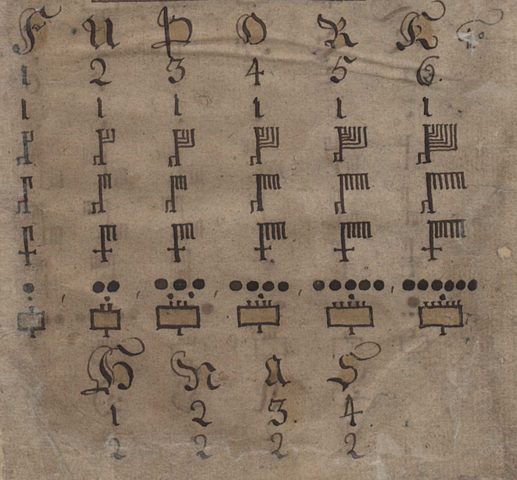 F U Þ O R K
1 2 3 4 5 6.
1 1 1 1 1 1
H N A S
1 2 3. 4.
2 2 2 2